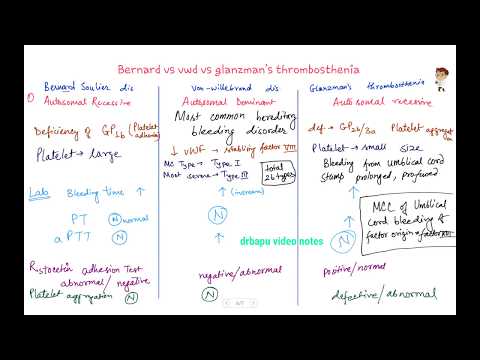 Bernard vs vwd vs glanzman's thrombosthenia
Bernard Soulier dis
① Autosomal Recessive
Deficiency of GP1b (Platelet adhesion)
Platelet → large
Lab Bleeding time ↑
PT Ⓝ normal
a PTT Ⓝ
Ristocetin adhesion Test
abnormal / negative
Platelet aggregation Ⓝ
Von-willebrand dis
Autosomal Dominant
Most common hereditary
bleeding disorder
↓ vWF → stabiling factor VIII
MC Type → Type I
Most severe → Type III
total
26 types
↑ (increase)
Ⓝ
↑
drbapu video notes
negative/abnormal
Ⓝ
Glanzman's thrombosthenia
Autosomal recessive
def → GP2b/3a Platelet aggregat
Platelet → small size
Bleeding from Umblical cord
stump prolonged, profused
↑
Ⓝ
MCC of Umblical
Cord bleeding is
factor origin
positive/normal
defective/abnormal
6/7